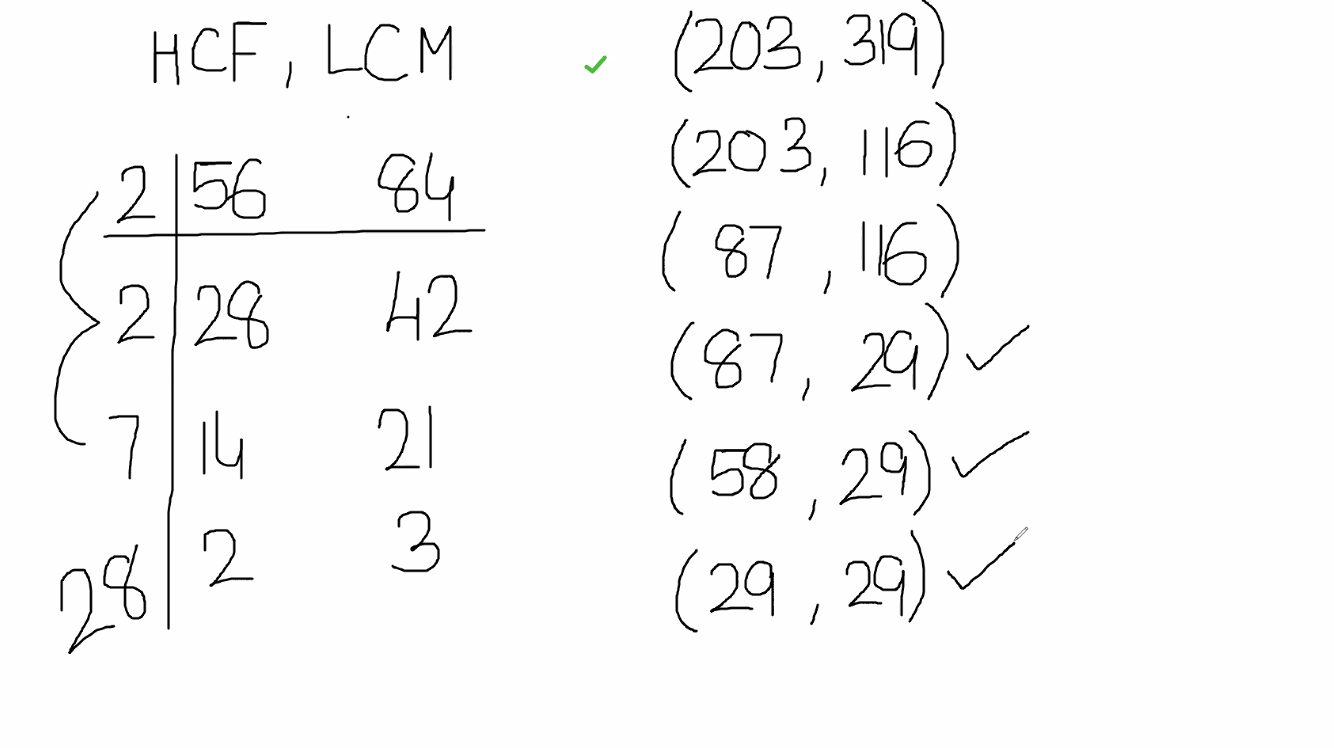 HCF, LCM
2 56 84
2 28 42
7 14 21
2 3
28
(203, 319)
(203, 116)
(87, 116)
(87, 29)
(58, 29)
(29, 29)